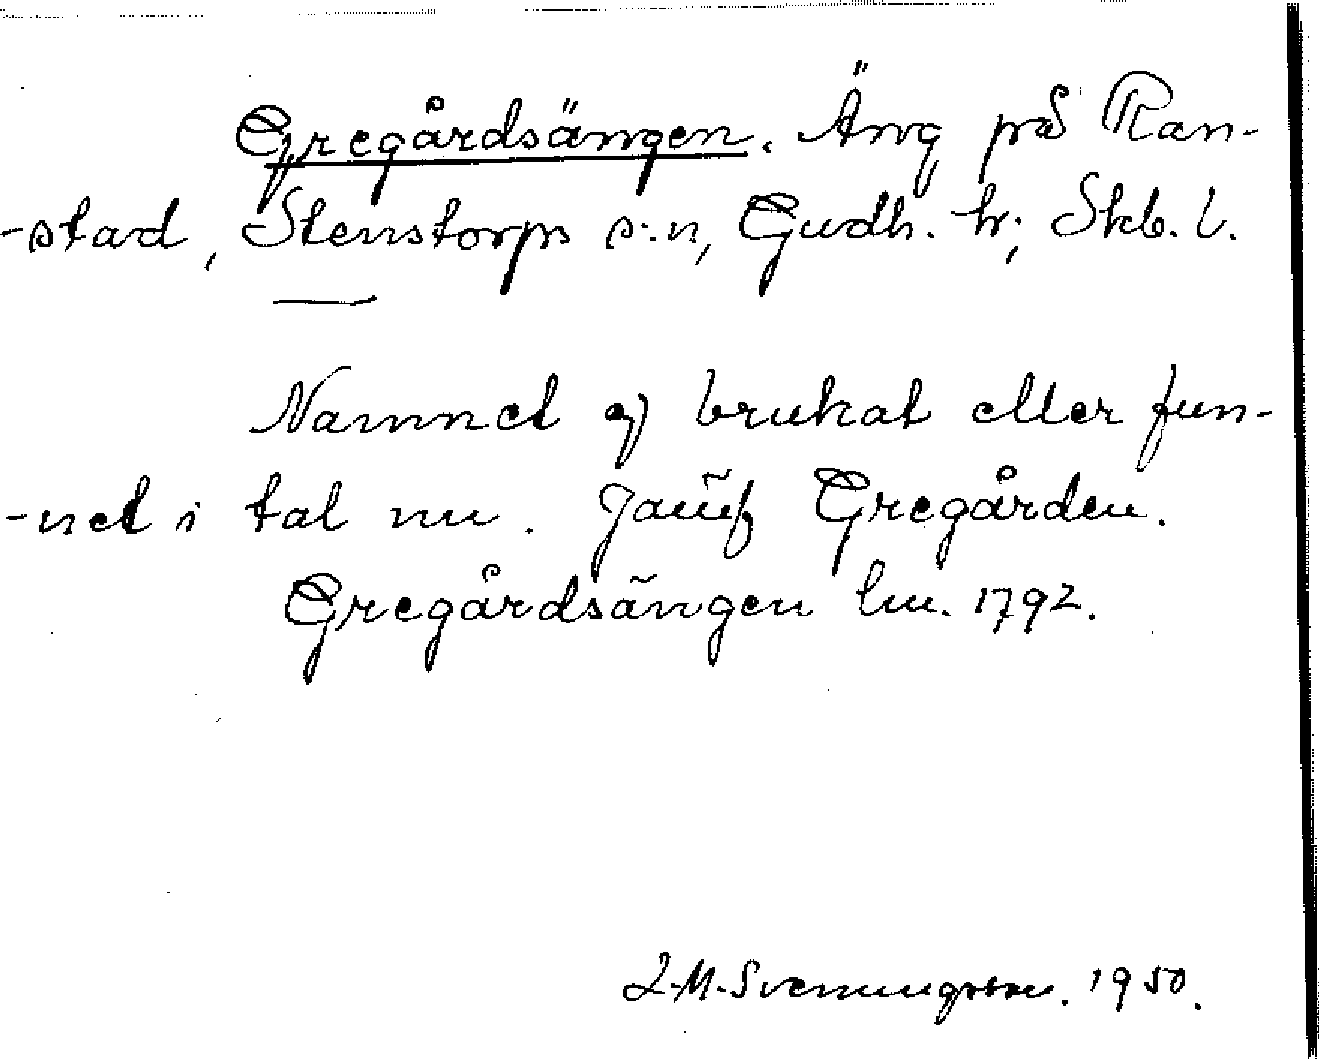 Gregårdsängen. Äng på Ran-
-stad, Stenstorps s:n, Gudh. hr; Skb. l.
Namnet ej brukat eller fun-
-net i tal nu. Jämf Gregården.
Gregårdsängen lm. 1792.
L.M. Svenungsson. 1950.